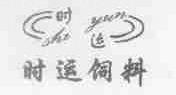 时 yun
she 运
时运饲料